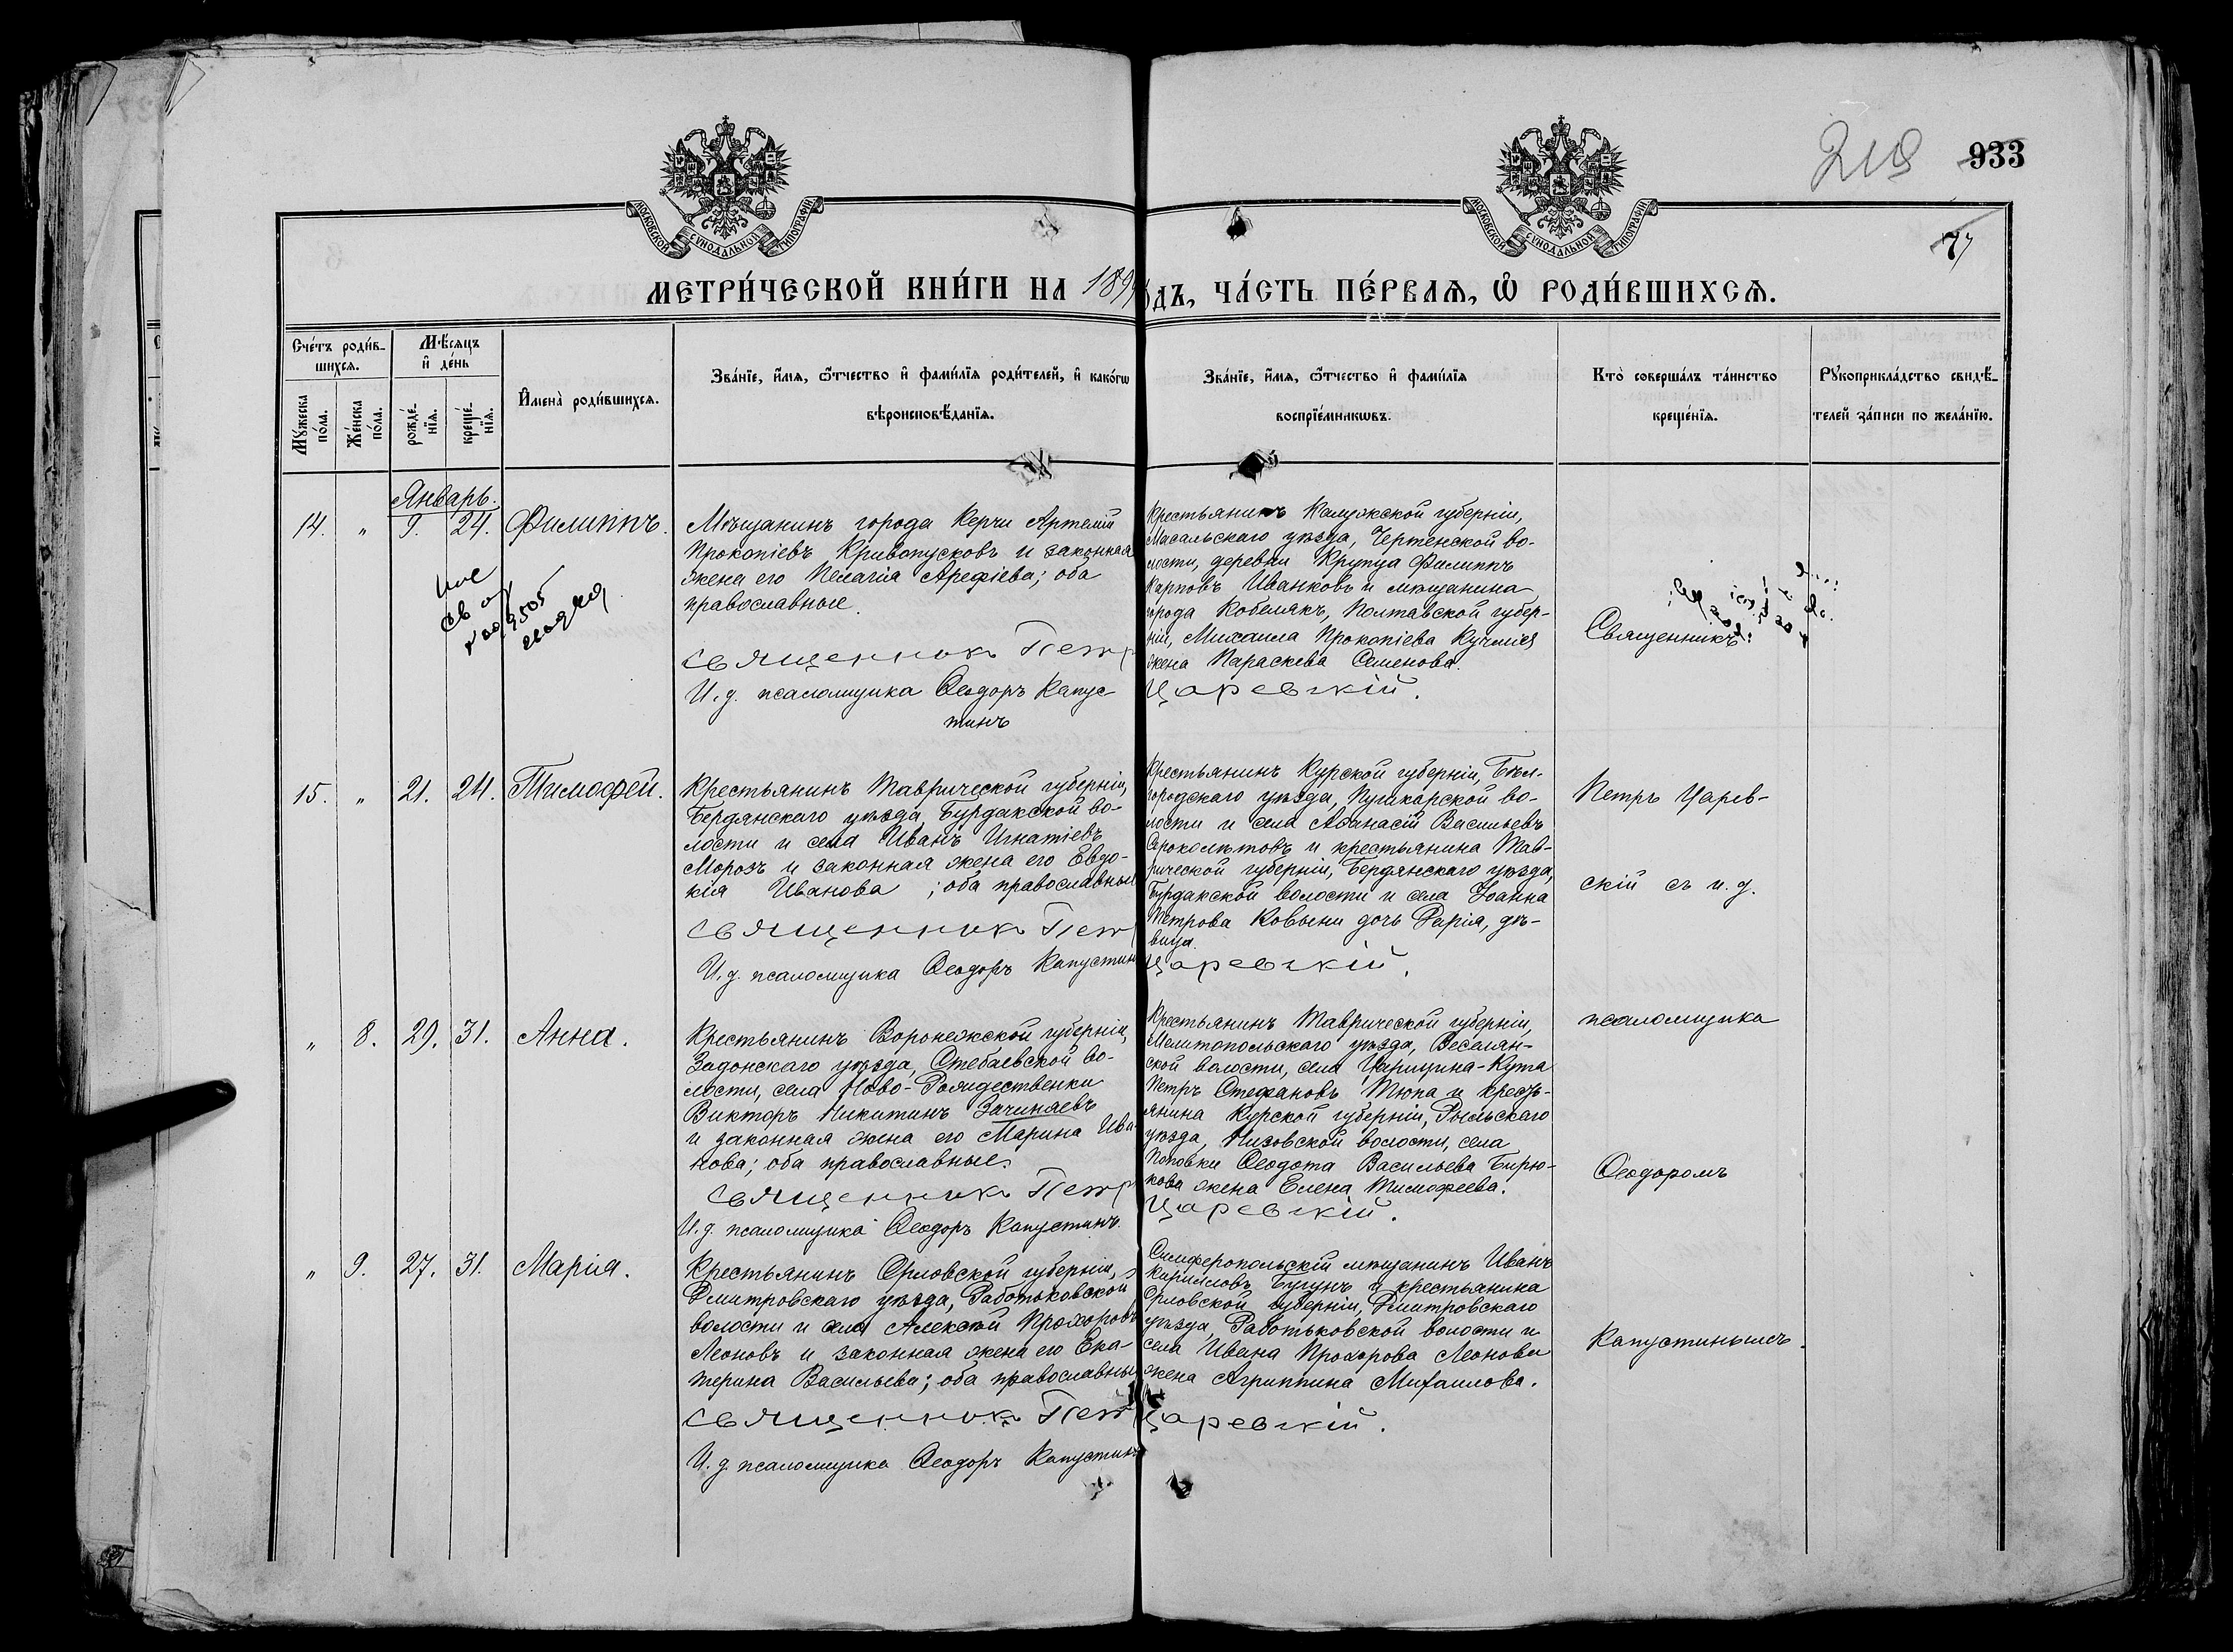 219 933
7
МОСКОВСКОЙ СѴНОДАЛЬНОЙ ТИПОГРАФІИ
МОСКОВСКОЙ СѴНОДАЛЬНОЙ ТИПОГРАФІИ
МЕТРИ́ЧЕСКОЙ КНИ́ГИ НА 189
ДЪ, ЧА́СТЬ ПЕ́РВАѦ, Ѡ РОДИ́ВШИХСѦ.
Сче́тъ роди́в-
шихсѧ.
Мꙋ́жеска по́ла.
Же́нска по́ла.
Мѣ́сѧцъ
и҆ де́нь
рожде́-
нїѧ.
креще́-
нїѧ.
И҆мена̀ роди́вшихсѧ.
Зва́нїе, и҆́мѧ, ѻ҆́тчество и҆ фами́лїѧ роди́телей, и҆ како́гѡ
вѣроисповѣ́данїѧ.
Зва́нїе, и҆́мѧ, ѻ҆́тчество и҆ фами́лїѧ
воспрїе́мникѡвъ.
Кто̀ соверша́лъ та́инство
креще́нїѧ.
Рꙋкоприкла́дство свидѣ́-
телей за́писи по жела́нїю.
Январь.
14. " 9. 24. Филиппъ.
Мѣщанинъ города Керчи Артемій
Прокопіевъ Кривопусковъ и законная
жена его Пелагія Арефіева; оба
православные.
Священникъ Петр
И. д. псаломщика Ѳеодоръ Капус-
тинъ
Крестьянинъ Калужской губерніи,
Масальскаго уѣзда, Чертенской во-
лости, деревни Крутца Филиппъ
Карповъ Иванковъ и мѣщанина
города Кобелякъ, Полтавской губер-
ніи, Михаила Прокопіева
жена Параскева Семенова.
Царевскій.
Священникъ
15. " 21. 24. Тимофей.
Крестьянинъ Таврической губерніи,
Бердянскаго уѣзда, Бурдакской во-
лости и села Иванъ Игнатіевъ
Морозъ и законная жена его Евдо-
кія Иванова; оба православные
Священникъ Петр
И. д. псаломщика Ѳеодоръ Капустин
Крестьянинъ Курской губерніи, Бѣл-
городскаго уѣзда, Пушкарской во-
лости и села Аѳанасій Васильевъ
Сороколѣтовъ и крестьянина Тав-
рической губерніи, Бердянскаго уѣзда,
Бурдакской волости и села Іоанна
Петрова Ковыни дочь Дарія, дѣ-
вица.
Царевскій.
Петръ Царев-
скій съ и. д.
" 8. 29. 31. Анна.
Крестьянинъ Воронежской губерніи,
Задонскаго уѣзда, Стебаевской во-
лости, села Ново-Рождественки
Викторъ Никитинъ Зачиняевъ
и законная жена его Марина Ива-
нова; оба православные.
Священникъ Петр
И. д. псаломщика Ѳеодоръ Капустинъ.
Крестьянинъ Таврической губерніи,
Мелитопольскаго уѣзда, Веселян-
ской волости, села Царицина-Кута
Петръ Стефановъ Тюпа и кресть-
янина Курской губерніи, Рыльскаго
уѣзда, Низовской волости, села
Поповки Ѳеодота Васильева Бирю-
кова жена Елена Тимофеева.
Царевскій.
псаломщика
Ѳеодоромъ
" 9. 27. 31. Марія.
Крестьянинъ Орловской губерніи,
Дмитровскаго уѣзда, Работьковской
волости и села Алексѣй Прохоровъ
Леоновъ и законная жена его Ека-
терина Васильева; оба православны
Священникъ Петр
И. д. псаломщика Ѳеодоръ Капустин
Симферопольскій мѣщанинъ Иванъ
Кирилловъ Бугунъ и крестьянина
Орловской губерніи, Дмитровскаго
уѣзда, Работьковской волости и
села Ивана Прохорова Леонова
жена Агриппина Михаилова.
Царевскій.
Капустинымъ.